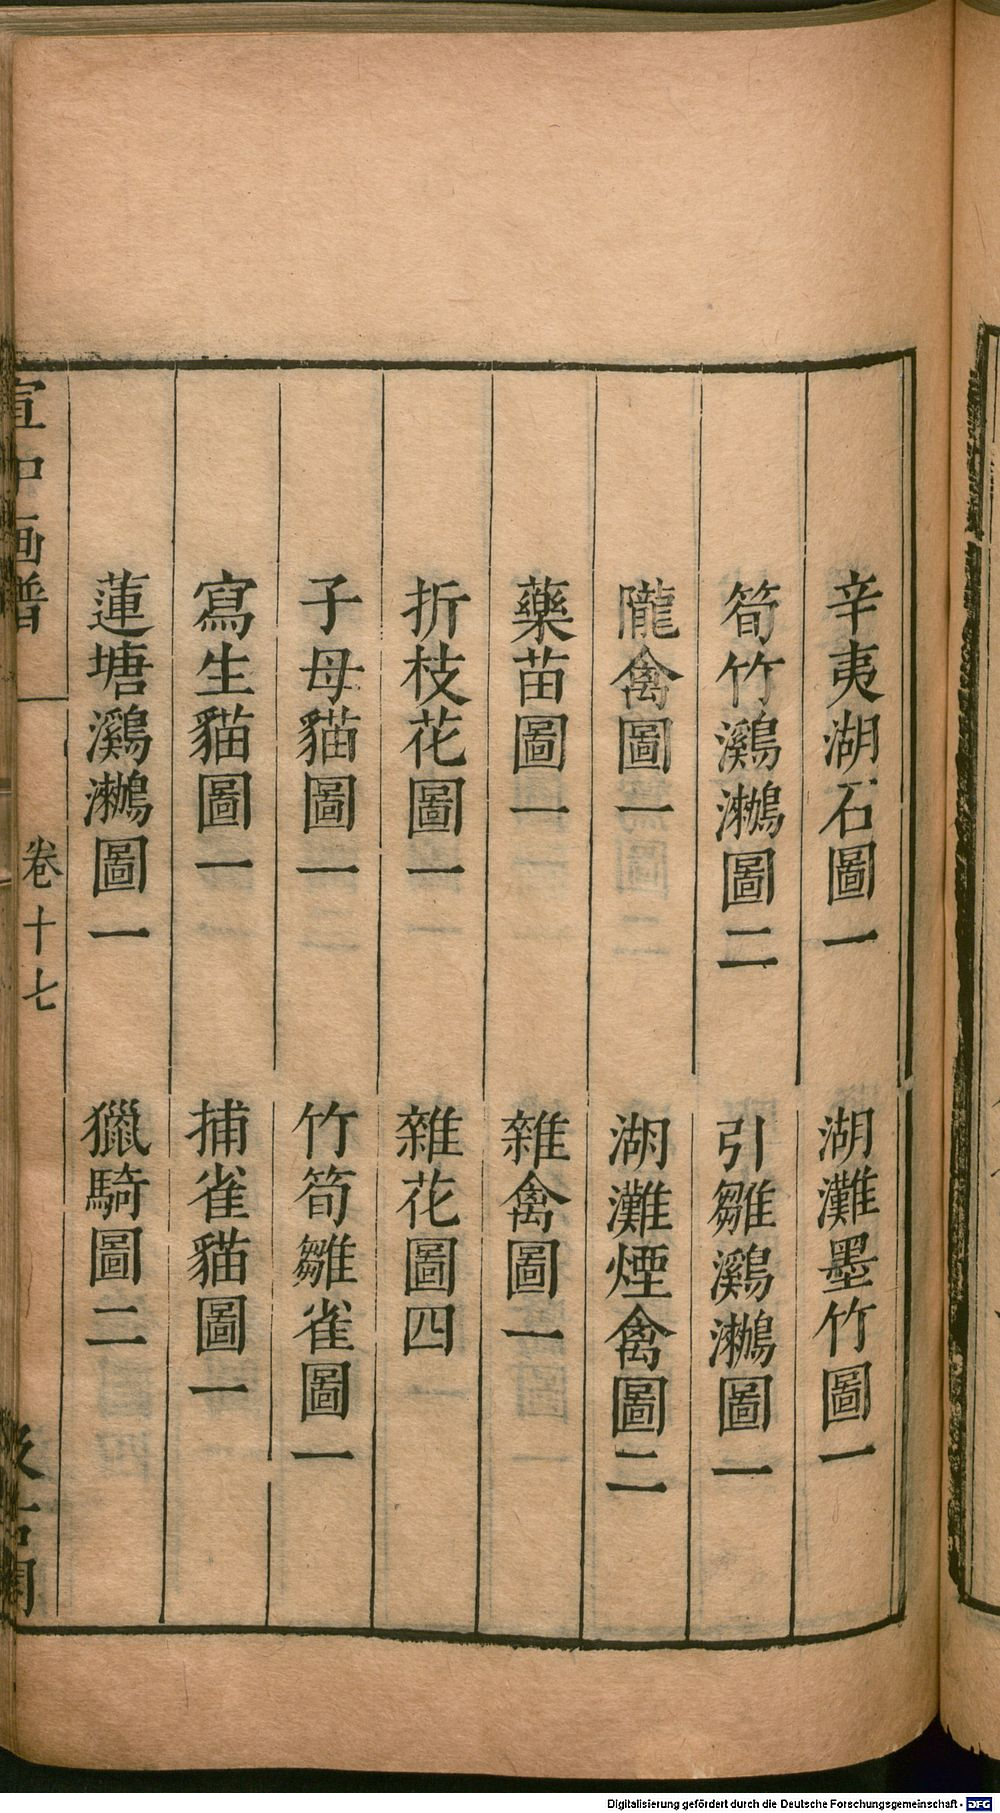 辛夷湖石圖一　湖灘墨竹圖一
筍竹鸂鷘圖二　引雛鸂鷘圖一
隴禽圖一　湖灘煙禽圖二
藥苗圖一　雜禽圖一
折枝花圖一　雜花圖四
子母貓圖一　竹筍雛雀圖一
寫生貓圖一　捕雀貓圖一
蓮塘鸂鷘圖一　獵騎圖二
宣和画譜　卷十七　汲古閣
Digitalisierung gefördert durch die Deutsche Forschungsgemeinschaft - DFG